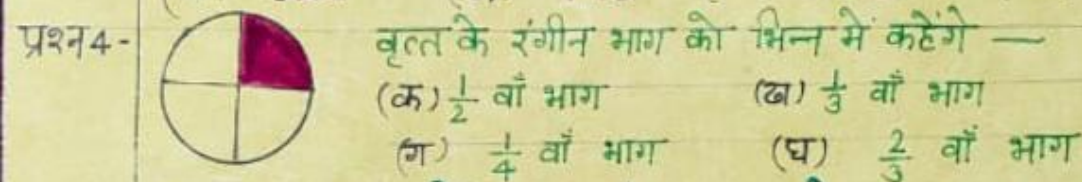 प्रश्न4- वृत्त के रंगीन भाग को भिन्न में कहेंगे —
(क) 1/2 वाँ भाग (ख) 1/3 वाँ भाग
(ग) 1/4 वाँ भाग (घ) 2/3 वाँ भाग